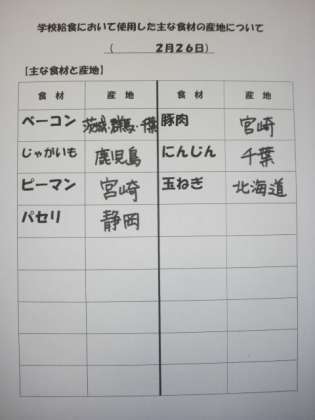 学校給食において使用した主な食材の産地について
（ 2月26日）
【主な食材と産地】
食 材 産 地 食 材 産 地
ベーコン 茨城・群馬・千葉 豚肉 宮崎
じゃがいも 鹿児島 にんじん 千葉
ピーマン 宮崎 玉ねぎ 北海道
パセリ 静岡